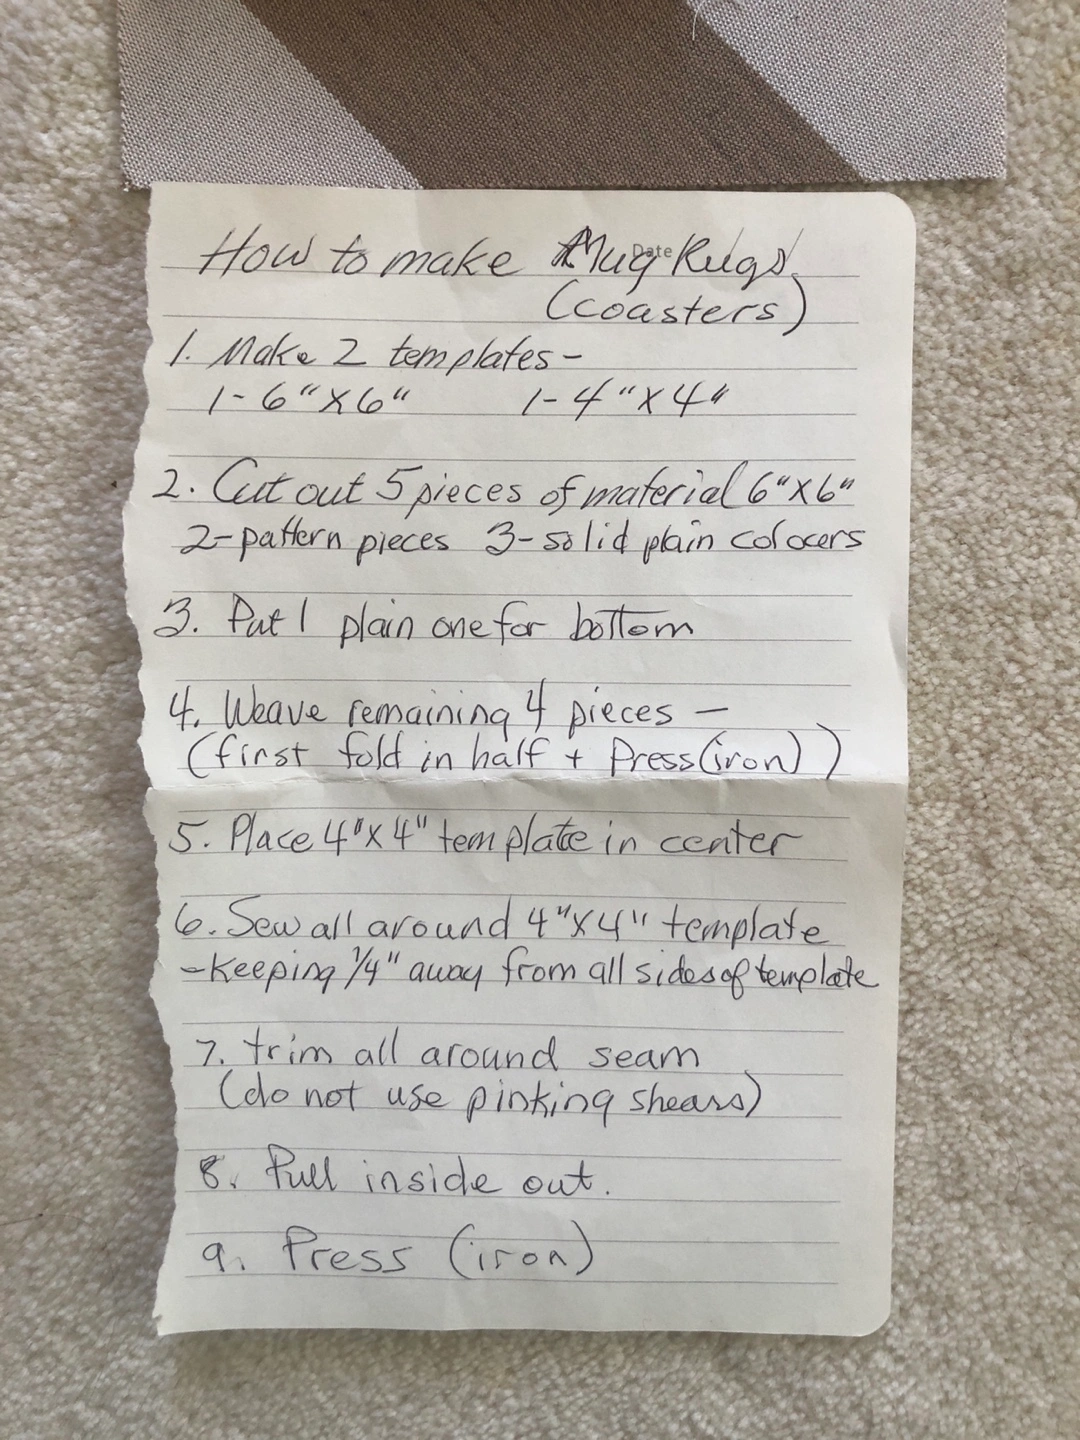 Date
How to make Mug Rugs
(coasters)
1. Make 2 templates-
1-6"X6" 1-4"X4"
2. Cut out 5 pieces of material 6"X6"
2-pattern pieces 3-solid plain colours
3. Put 1 plain one for bottom
4. Weave remaining 4 pieces -
(first fold in half + Press(iron))
5. Place 4"X4" template in center
6. Sew all around 4"X4" template
-Keeping 1/4" away from all sides of template
7. trim all around seam
(do not use pinking shears)
8. Pull inside out.
9. Press (iron)